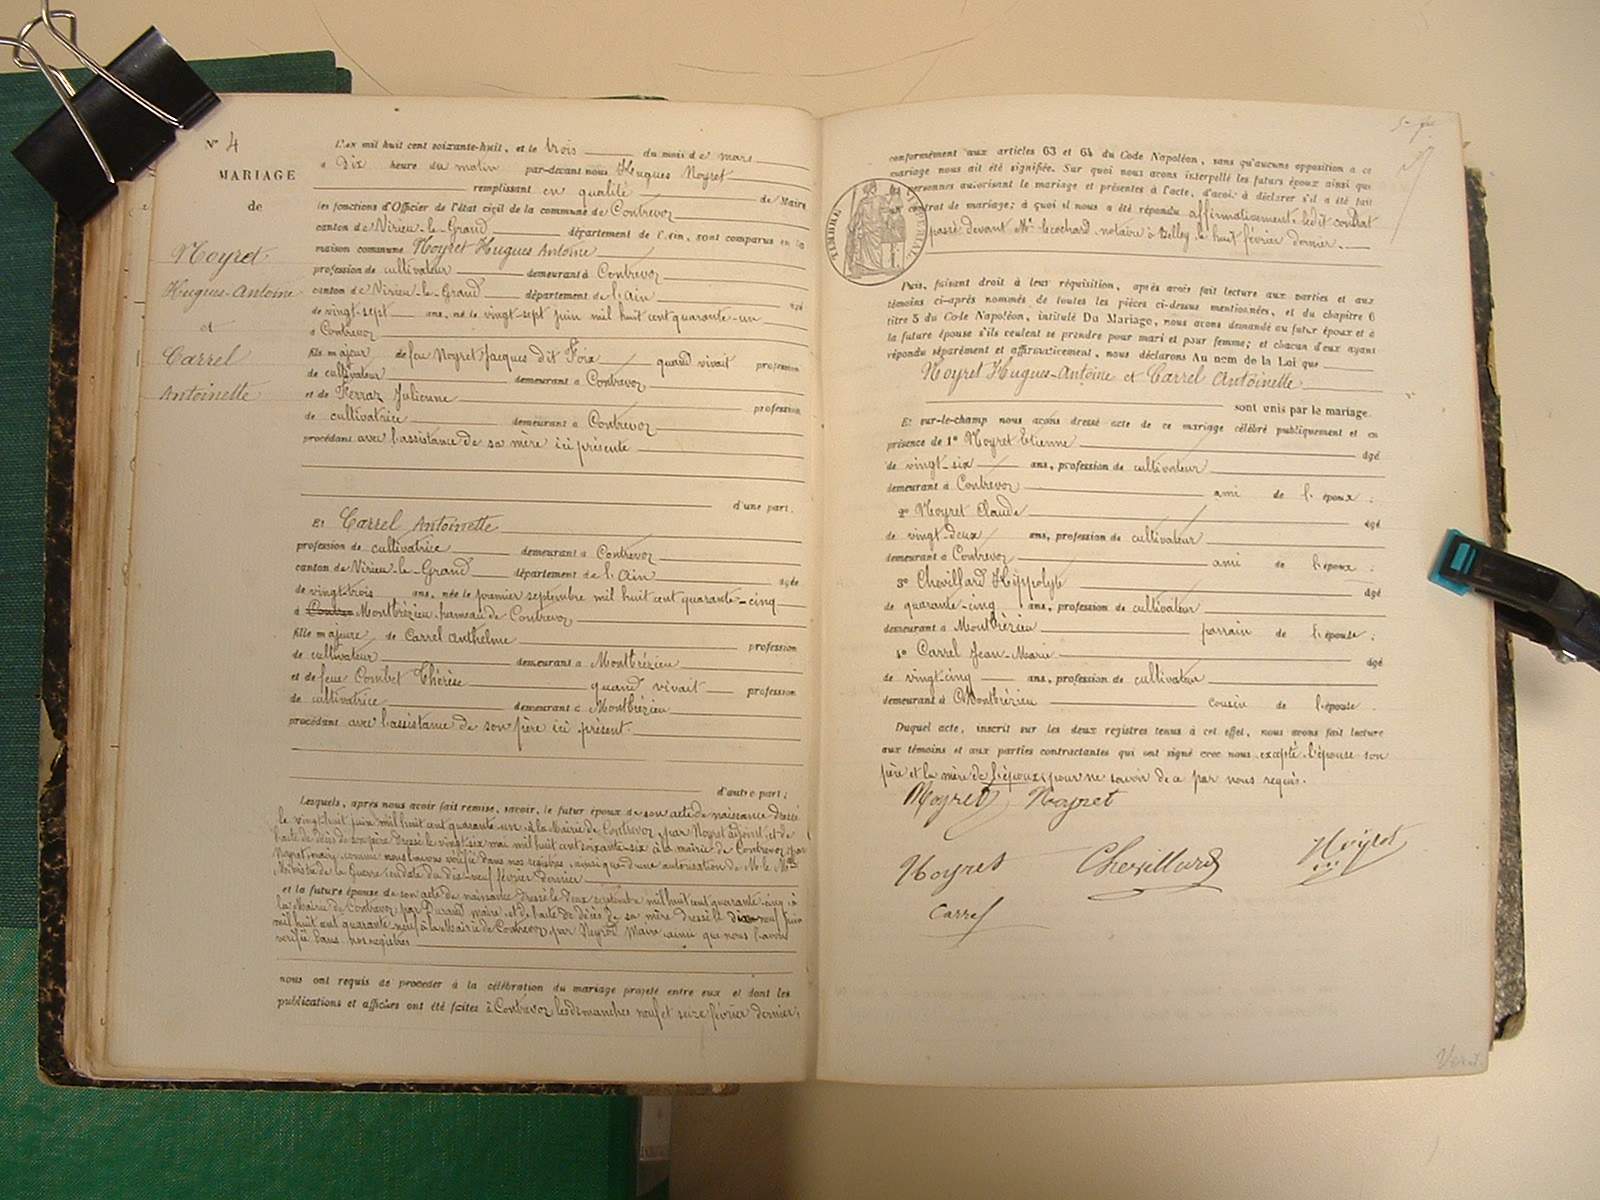 N° 4
MARIAGE
de
Noyret
Hugues-Antoine
et
Carrel
Antoinette
L'an mil huit cent soixante-huit, et le trois du mois de mars
à dix heure du matin par-devant nous Hugues Noyret
remplissant en qualité de Maire
les fonctions d'Officier de l'état civil de la commune de Contrevoz
canton de Virieu-le-Grand département de l'Ain, sont comparus en la
maison commune Noyret Hugues Antoine
profession de cultivateur demeurant à Contrevoz
canton de Virieu-le-Grand département de l'Ain âgé
de vingt-sept ans, né le vingt-sept juin mil huit cent quarante-un
à Contrevoz
fils majeur de feu Noyret Jacques dit Foix quand vivait profession
de cultivateur demeurant à Contrevoz
et de Ferraz Julienne profession
de cultivatrice demeurant à Contrevoz
procédant avec l'assistance de sa mère ici présente
d'une part.
Et Carrel Antoinette
profession de cultivatrice demeurant à Contrevoz
canton de Virieu-le-Grand département de l'Ain âgée
de vingt-trois ans, née le premier septembre mil huit cent quarante-cinq
à Montbrézieu hameau de Contrevoz
fille majeure de Carrel Anthelme profession
de cultivateur demeurant à Montbrézieu
et de feue Combet Thérèse quand vivait profession
de cultivatrice demeurant à Montbrézieu
procédant avec l'assistance de son père ici présent.
d'autre part;
Lesquels, après nous avoir fait remise, savoir, le futur époux de son acte de naissance dressé
le vingt huit juin mil huit cent quarante-un à la Mairie de Contrevoz, par Noyret adjoint, et de
l'acte de décès de son père dressé le vingt-six mai mil huit cent soixante-six à la mairie de Contrevoz par
Noyret, maire, comme nous l'avons vérifié dans nos registres, ainsi que d'une autorisation de M. le
Ministre de la Guerre en date du dix-neuf février dernier
et la future épouse de son acte de naissance dressé le deux septembre mil huit cent quarante-cinq à
la Mairie de Contrevoz par Durand maire, et de l'acte de décès de sa mère dressé le dix neuf juin
mil huit cent quarante neuf à la Mairie de Contrevoz, par Neyrod Maire ainsi que nous l'avons
vérifié dans nos registres
nous ont requis de procéder à la célébration du mariage projeté entre eux et dont les
publications et affiches ont été faites à Contrevoz les dimanches neuf et seize février dernier,
conformément aux articles 63 et 64 du Code Napoléon, sans qu'aucune opposition a ce
mariage nous ait été signifiée. Sur quoi nous avons interpellé les futurs époux ainsi que
personnes autorisant le mariage et présentes à l'acte, d'avoir à déclarer s'il a été fait
un contrat de mariage; à quoi il nous a été répondu affirmativement. ledit contrat
passé devant Me Lecochard notaire à Belley, le huit février dernier.
TIMBRE IMPERIAL
Puis, faisant droit à leur réquisition, après avoir fait lecture aux parties et aux
témoins ci-après nommés, de toutes les pièces ci-dessus mentionnées, et du chapitre 6
titre 5 du Code Napoléon, intitulé Du Mariage, nous avons demandé au futur époux et à
la future épouse s'ils veulent se prendre pour mari et pour femme; et chacun d'eux ayant
répondu séparément et affirmativement, nous déclarons Au nom de la Loi que
Noyret Hugues-Antoine et Carrel Antoinette
sont unis par le mariage.
Et sur-le-champ nous avons dressé acte de ce mariage célébré publiquement et en
présence de 1° Noyret Etienne âgé
de vingt-six ans, profession de cultivateur
demeurant à Contrevoz ami de l'époux;
2° Noyret Claude âgé
de vingt-deux ans, profession de cultivateur
demeurant à Contrevoz ami de l'époux;
3° Chevillard Hyppolyte âgé
de quarante-cinq ans, profession de cultivateur
demeurant à Montbrézieu parrain de l'épouse;
4° Carrel Jean-Marie âgé
de vingt-cinq ans, profession de cultivateur
demeurant à Montbrézieu cousin de l'épouse.
Duquel acte, inscrit sur les deux registres tenus à cet effet, nous avons fait lecture
aux témoins et aux parties contractantes qui ont signé avec nous, excepté l'épouse son
père et la mère de l'époux, pour ne savoir de ce par nous requis.
Noyret Noyret
Noyret Chevillard Noyret
Carrel